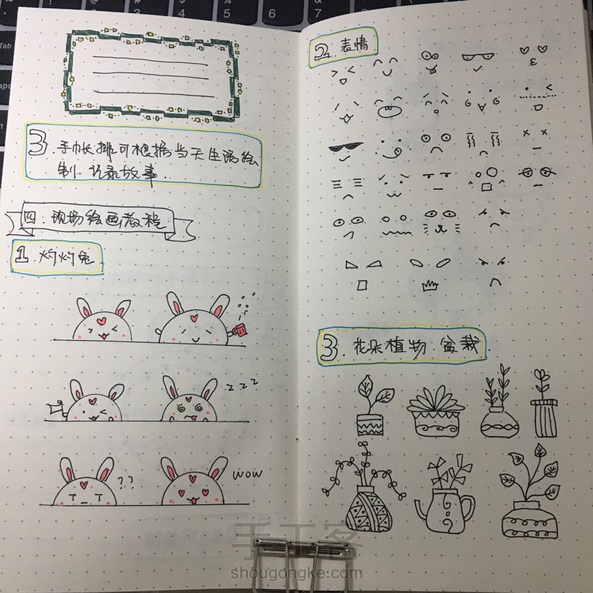 3.手帐排可根据当天生活绘
制.记录故事
四.现场绘画教程
1.灼灼兔
zzz
??
wow
2.表情
3.花朵植物.盆栽
手工客
shougongke.com